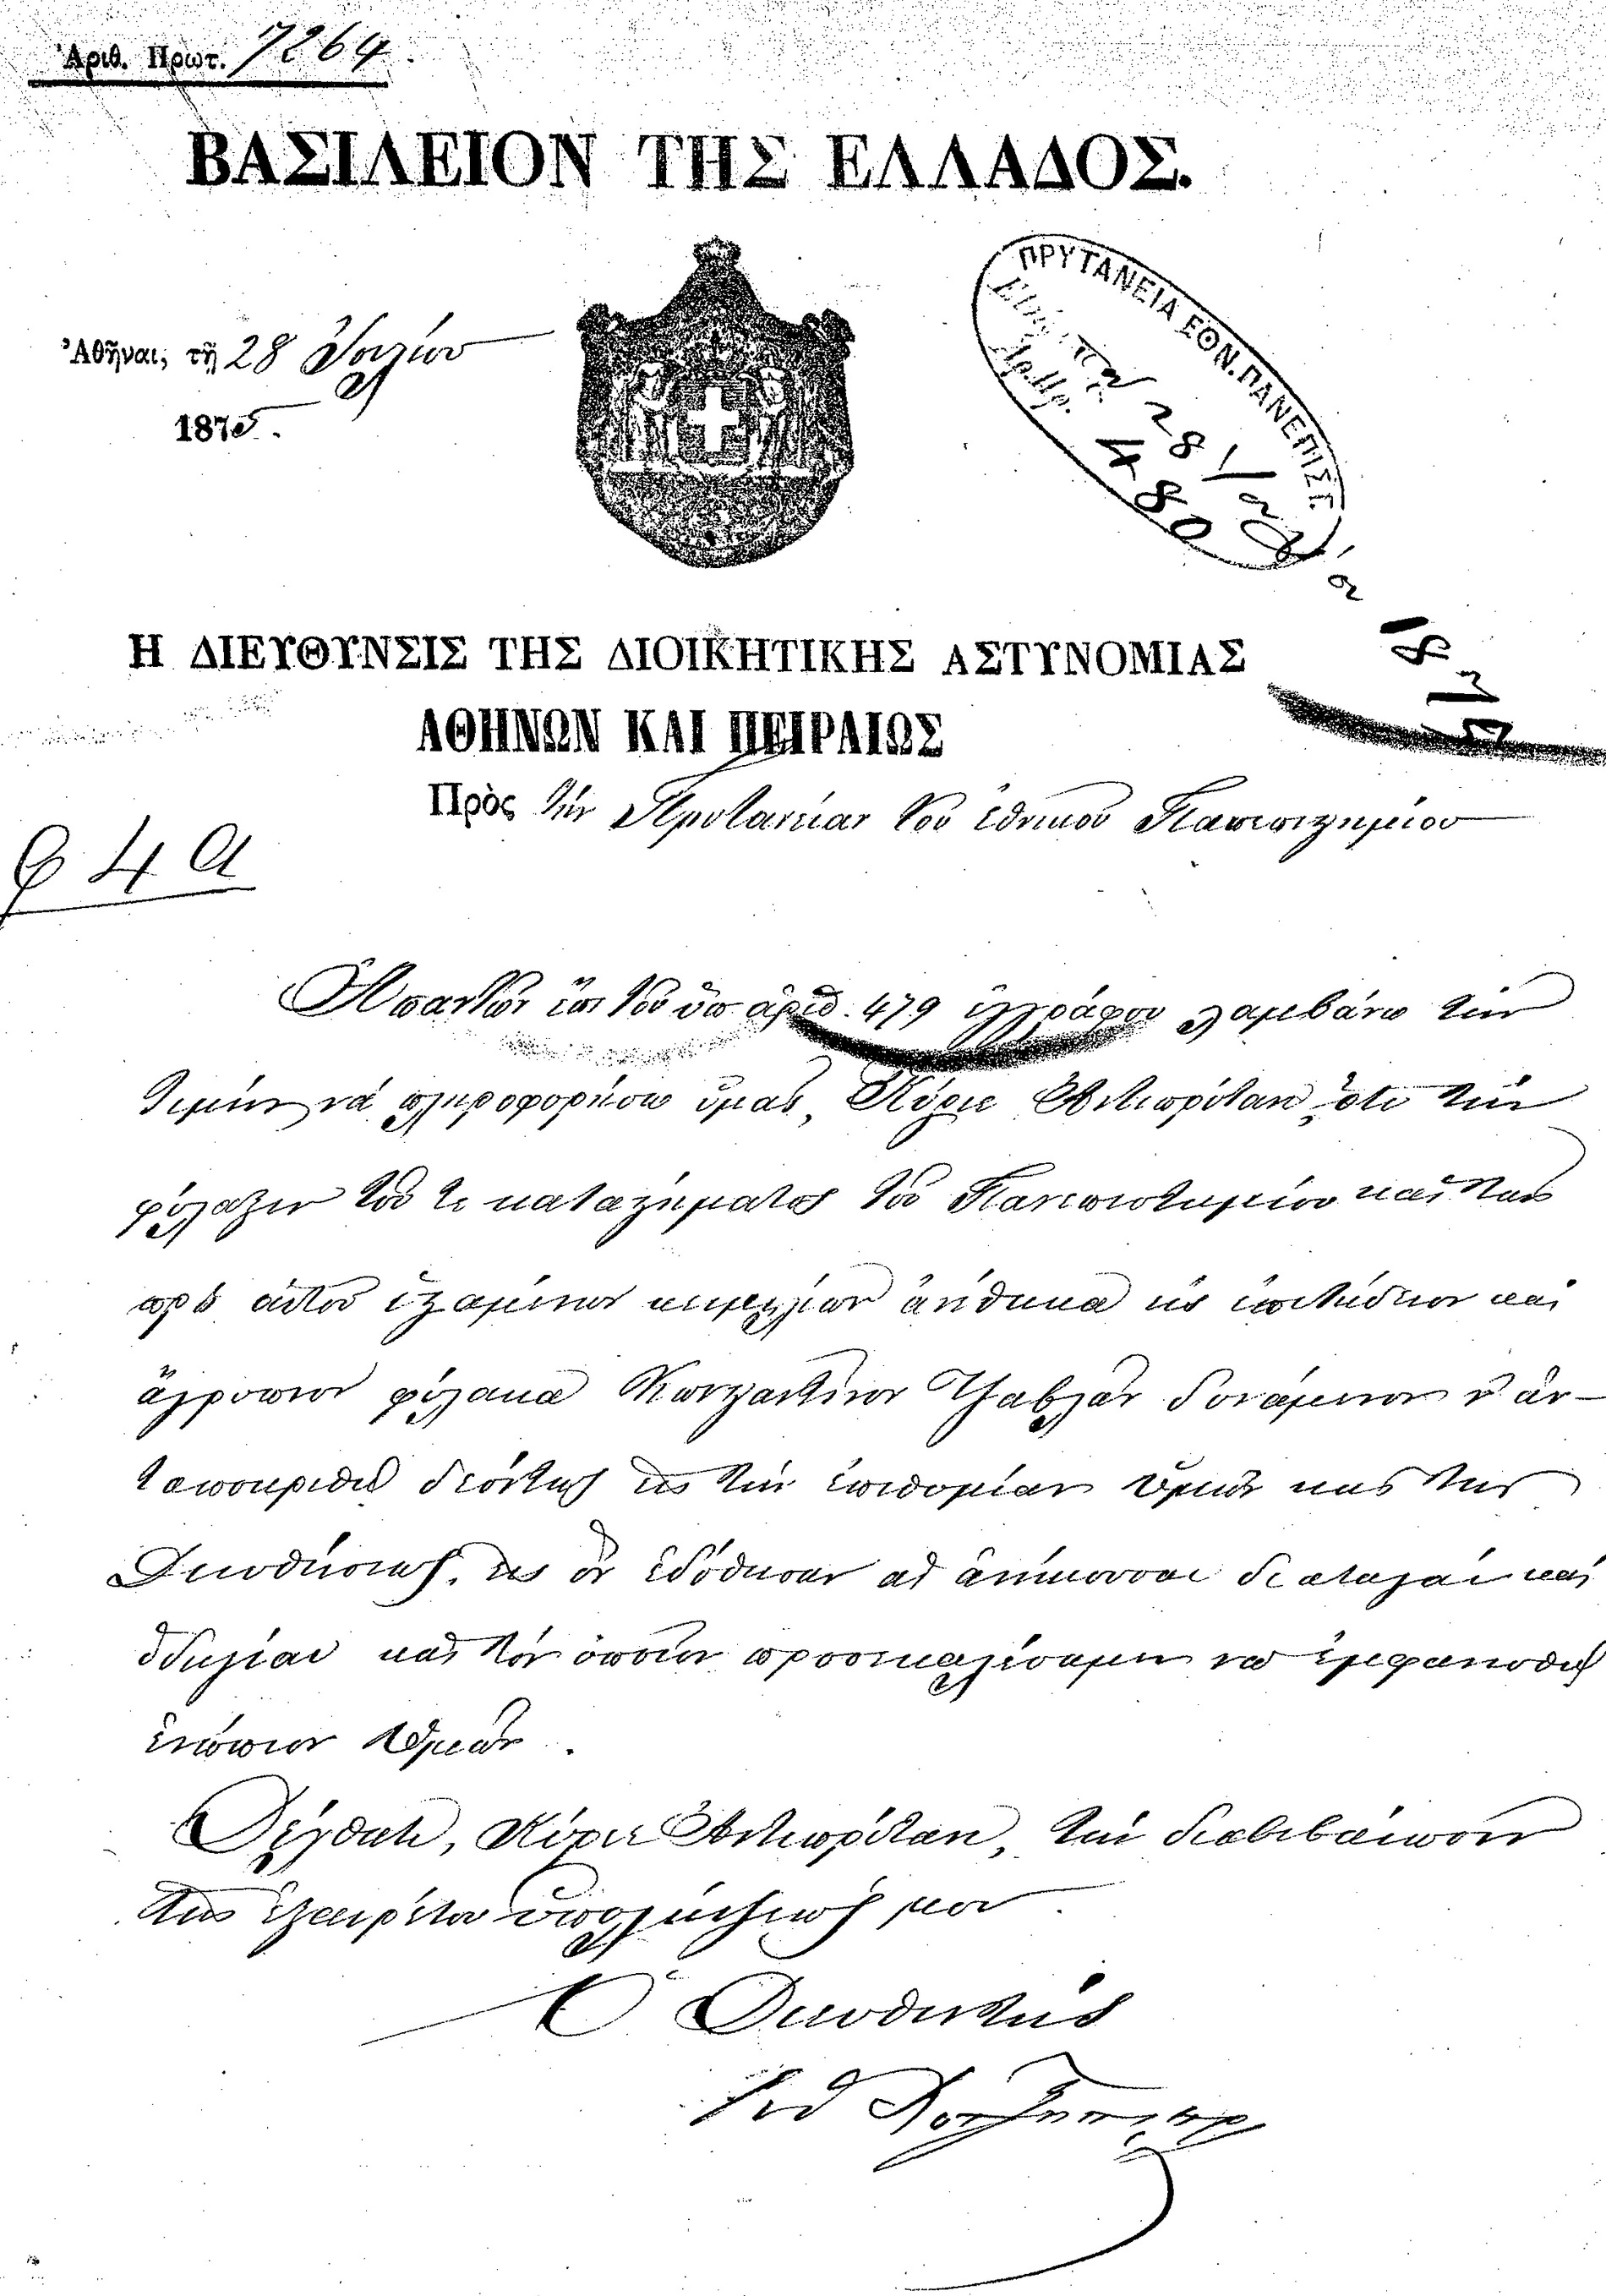 Ἀριθ. Πρωτ. 7264.
ΒΑΣΙΛΕΙΟΝ ΤΗΣ ΕΛΛΑΔΟΣ.
Ἀθῆναι, τῇ 28 Ἰουλίου
1875.
ΠΡΥΤΑΝΕΙΑ ΕΘΝ. ΠΑΝΕΠΙΣΤ.
Ἀρ. Πρ.
Η ΔΙΕΥΘΥΝΣΙΣ ΤΗΣ ΔΙΟΙΚΗΤΙΚΗΣ ΑΣΤΥΝΟΜΙΑΣ
ΑΘΗΝΩΝ ΚΑΙ ΠΕΙΡΑΙΩΣ
Πρὸς τὴν Πρυτανείαν τοῦ ἐθνικοῦ Πανεπιστημίου
Ἀπαντῶν ἐπὶ τοῦ ὑπ ἀριθ. 479 ἐγγράφου λαμβάνω τὴν
τιμὴν νὰ πληροφορήσω ὑμᾶς, Κύριε Ἀντιπρύτανι, ὅτι τὴν
φύλαξιν τοῦ τε καταστήματος τοῦ Πανεπιστημίου καὶ τῶν
πρὸ αὐτοῦ κειμένων ἀνέθηκα εἰς ἐπιτήδειον καὶ
ἄγρυπνον φύλακα Κωνσταντῖνον δυνάμενον ν' ἀν-
ταποκριθῇ δεόντως εἰς τὴν ἐπιθυμίαν ὑμῶν καὶ τῆς
Διευθύνσεως, εἰς ὃν ἐδόθησαν αἱ ἀνήκουσαι διαταγαὶ καὶ
ὁδηγίαι καὶ τὸν ὁποῖον προσεκαλέσαμεν νὰ ἐμφανισθῇ
ἐνώπιον ὑμῶν.
Δέχθητε, Κύριε Ἀντιπρύτανι, τὴν διαβεβαίωσιν
τῆς ἐξαιρέτου ὑπολήψεώς μου
Ὁ Διευθυντὴς